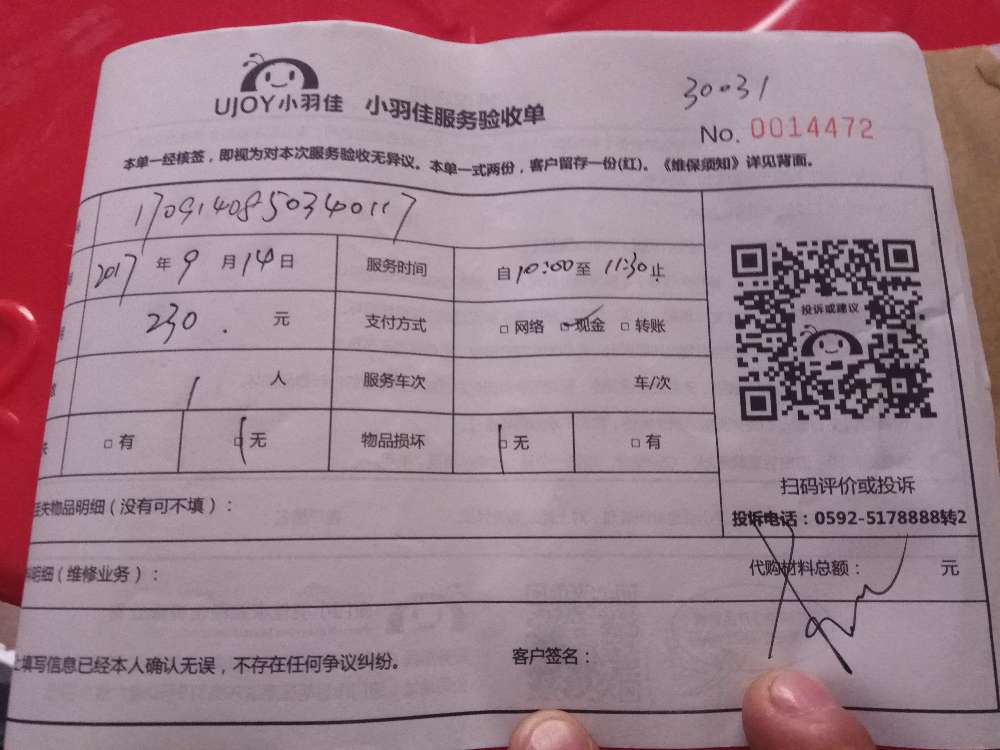 30031
UJOY小羽佳 小羽佳服务验收单
No. 0014472
本单一经核签，即视为对本次服务验收无异议。本单一式两份，客户留存一份(红)。《维保须知》详见背面。
1709140850340117
2017 年 9 月 14 日 服务时间 自 10:00 至 11:30 止
投诉或建议
230. 元 支付方式 □ 网络 □ 现金 □ 转账
1 人 服务车次 车/次
□ 有 □ 无 物品损坏 □ 无 □ 有
扫码评价或投诉
失物品明细（没有可不填）：
投诉电话：0592-5178888转2
明细（维修业务）： 代购材料总额： 元
填写信息已经本人确认无误，不存在任何争议纠纷。 客户签名：